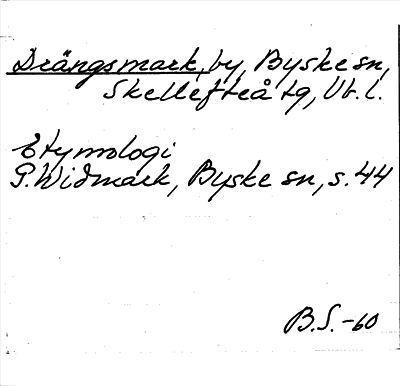 Drängsmark, by, Byske sn,
Skellefteå tg, Vb. l.
Etymologi
P. Widmark, Byske sn, s. 44
B.S.-60